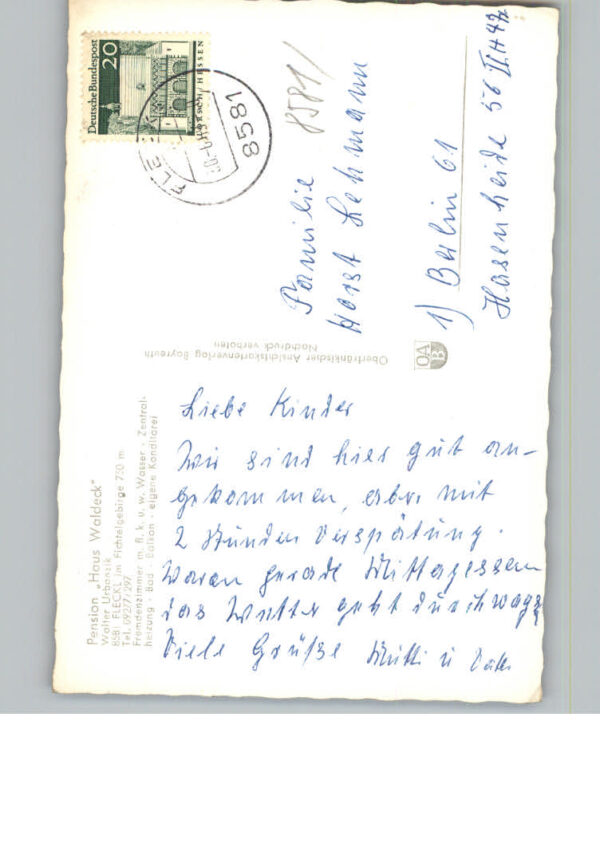 Pension „Haus Waldeck"
Walter Urbansik
8581 FLECKL im Fichtelgebirge 750 m
Tel. 09277/297
Fremdenzimmer m. fl. k. u. w. Wasser · Zentral-
heizung · Bad · Balkon · eigene Konditorei
Liebe Kinder
Wir sind hier gut an-
gekommen, aber mit
2 Stunden Verspätung.
Waren gerade Mittagessen
das Wetter geht durchwegs
Viele Grüße Mutti u Vati
Oberfränkischer Ansichtskartenverlag Bayreuth
Nachdruck verboten
OA
B
Deutsche Bundespost
20
LORSCH/HESSEN
8581
8581/
Familie
Horst Lehmann
1) Berlin 61
Hasenheide 56 II